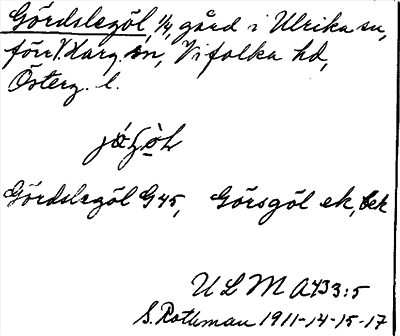 Gördslegöl, 1/4, gård i Ulrika sn,
förr V. Harg sn, Vifolka hd,
Österg. l.
Gördslegöl G45, Görsgöl ek, bek
ULMA 433:5
S. Rothman 1911-14-15-17